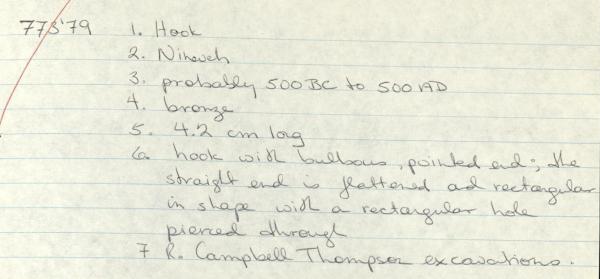 773'79 1. Hook
2. Nineveh
3. probably 500 BC to 500 AD
4. bronze
5. 4.2 cm long
6. hook with bulbous, pointed end; the
straight end is flattened and rectangular
in shape with a rectangular hole
pierced through
7 R. Campbell Thompson excavations.